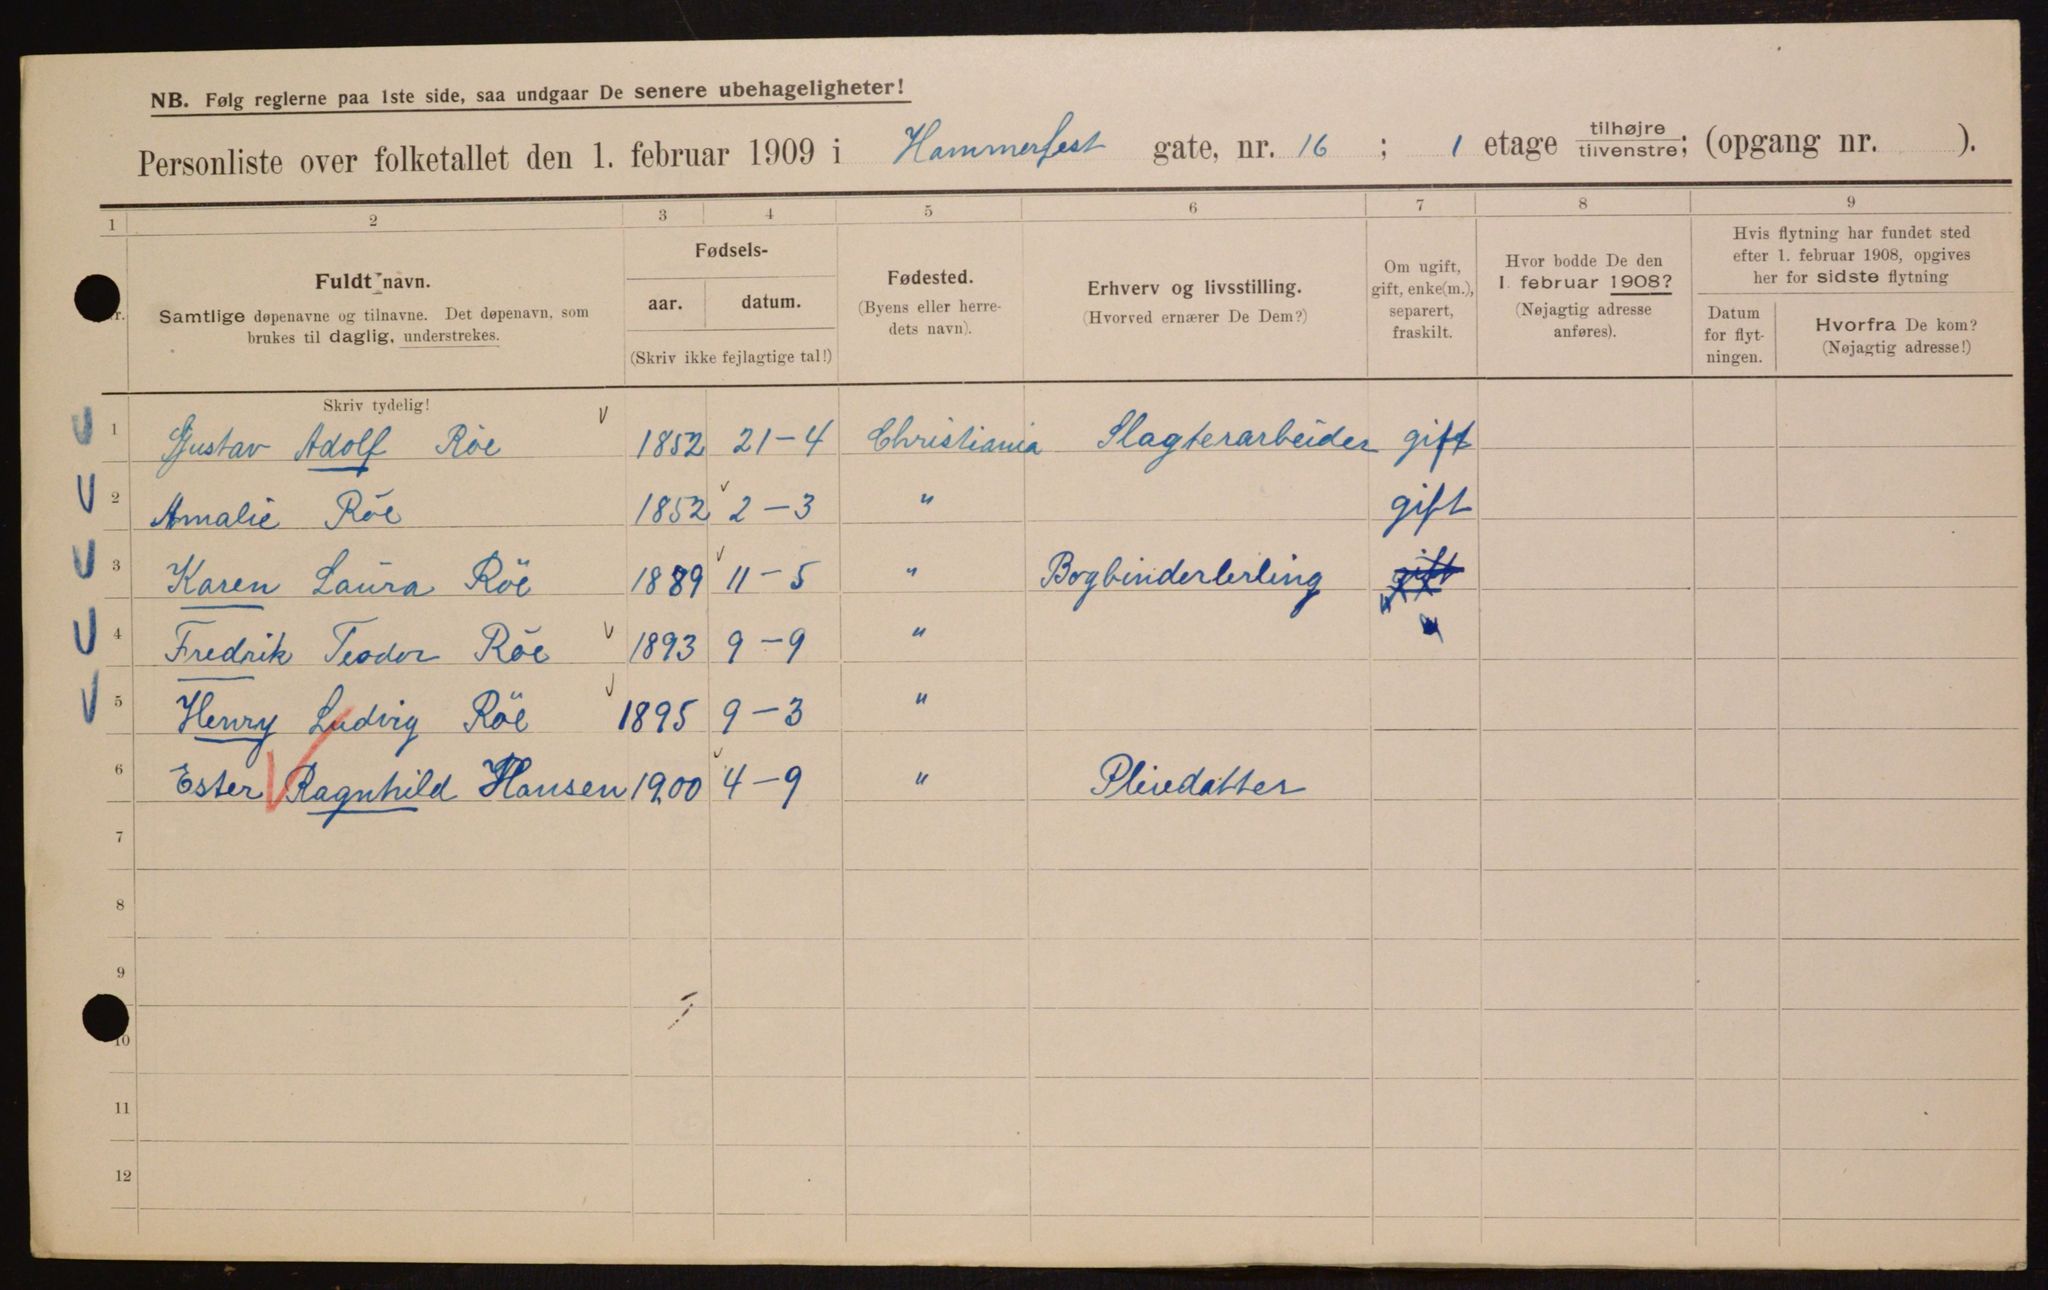 NB. Følg reglerne paa 1ste side, saa undgaar De senere ubehageligheter!
Personliste over folketallet den 1. februar 1909 i Hammerfest gate, nr. 16 ; 1 etage tilhøjre tilvenstre; (opgang nr. ).
1 2 3 4 5 6 7 8 9
Fuldt navn.
Samtlige døpenavne og tilnavne. Det døpenavn, som
brukes til daglig, understrekes.
Fødsels-
aar. datum.
(Skriv ikke fejlagtige tal!)
Fødested.
(Byens eller herre-
dets navn).
Erhverv og livsstilling.
(Hvorved ernærer De Dem?)
Om ugift,
gift, enke(m.),
separert,
fraskilt.
Hvor bodde De den
1. februar 1908?
(Nøjagtig adresse
anføres).
Hvis flytning har fundet sted
efter 1. februar 1908, opgives
her for sidste flytning
Datum
for flyt-
ningen.
Hvorfra De kom?
(Nøjagtig adresse!)
Skriv tydelig!
1 Gustav Adolf Röe 1852 21-4 Christiania Slagterarbeider gift
2 Amalie Röe 1852 2-3 " gift
3 Karen Laura Röe 1889 11-5 " Bogbinderlerling gift
4 Fredrik Teodor Röe 1893 9-9 "
5 Henry Ludvig Röe 1895 9-3 "
6 Ester Ragnhild Hansen 1900 4-9 " Pleiedatter
7
8
9
10
11
12